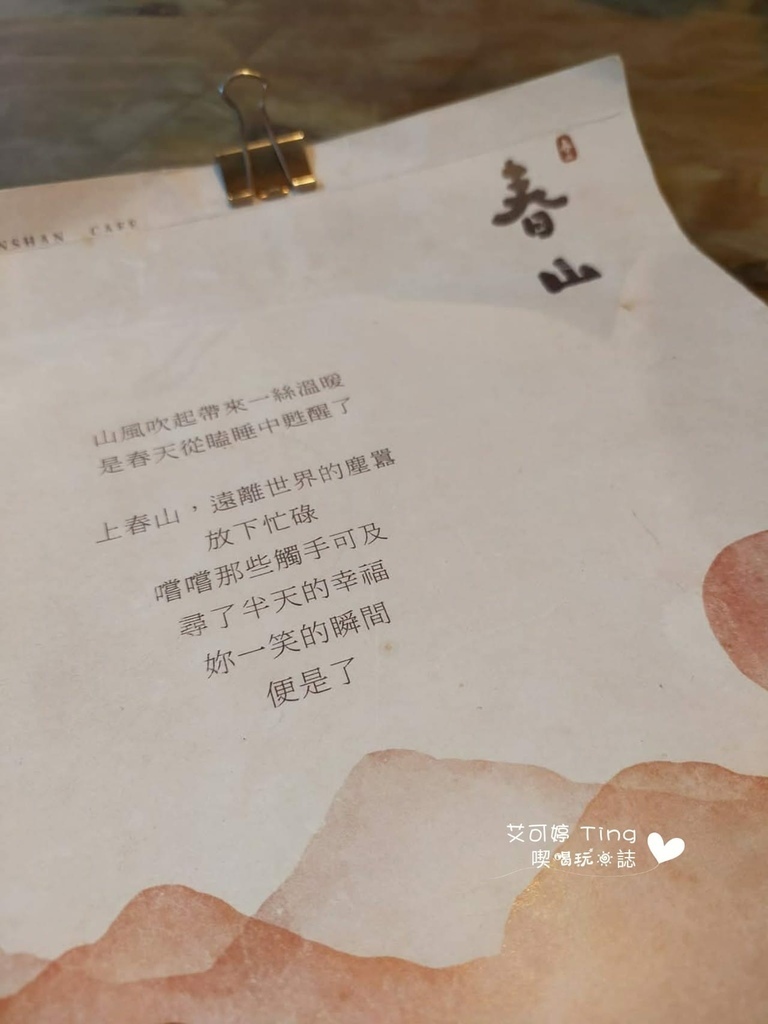 NSHAN CAFE
春
山
山風吹起帶來一絲溫暖
是春天從瞌睡中甦醒了
上春山，遠離世界的塵囂
放下忙碌
嚐嚐那些觸手可及
尋了半天的幸福
妳一笑的瞬間
便是了
艾可婷 Ting
喫喝玩樂誌